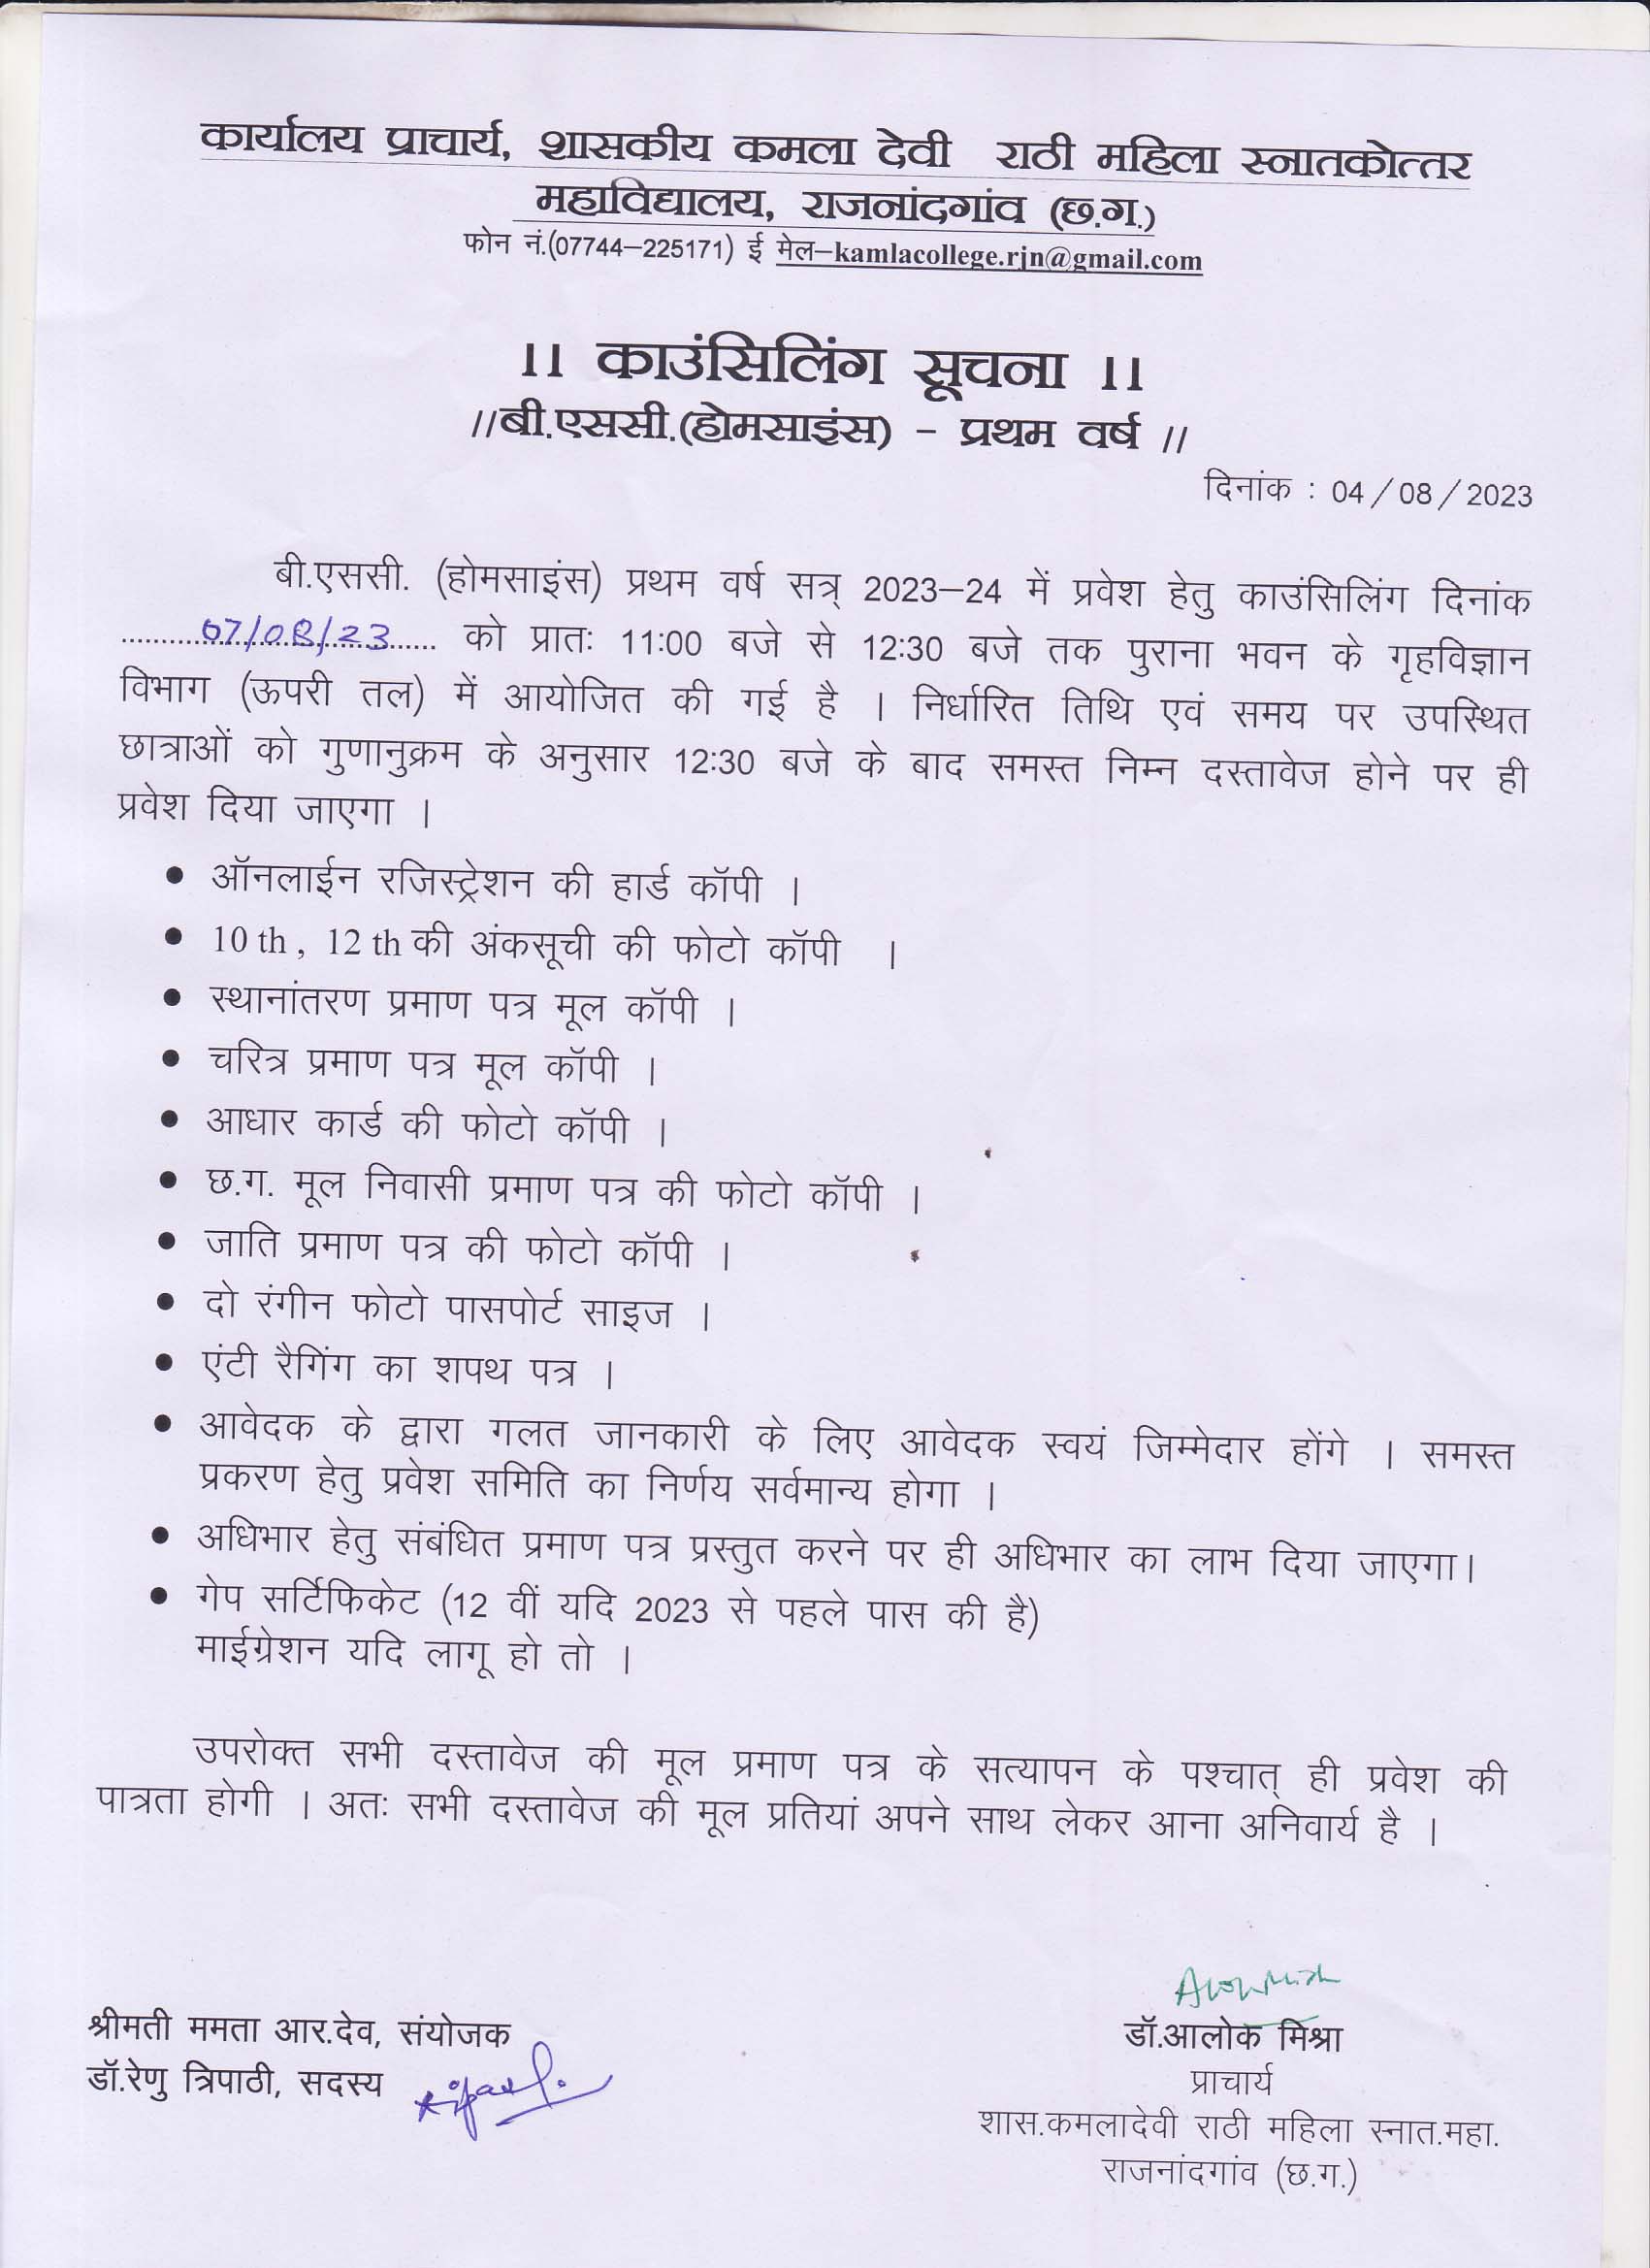 कार्यालय प्राचार्य, शासकीय कमला देवी राठी महिला स्नातकोत्तर
महाविद्यालय, राजनांदगांव (छ.ग.)
फोन नं.(07744–225171) ई मेल–kamlacollege.rjn@gmail.com
।। काउंसिलिंग सूचना ।।
//बी.एससी.(होमसाइंस) - प्रथम वर्ष //
दिनांक : 04/08/2023
बी.एससी. (होमसाइंस) प्रथम वर्ष सत्र् 2023–24 में प्रवेश हेतु काउंसिलिंग दिनांक
07/08/23 को प्रातः 11:00 बजे से 12:30 बजे तक पुराना भवन के गृहविज्ञान
विभाग (ऊपरी तल) में आयोजित की गई है । निर्धारित तिथि एवं समय पर उपस्थित
छात्राओं को गुणानुक्रम के अनुसार 12:30 बजे के बाद समस्त निम्न दस्तावेज होने पर ही
प्रवेश दिया जाएगा ।
• ऑनलाईन रजिस्ट्रेशन की हार्ड कॉपी ।
• 10 th , 12 th की अंकसूची की फोटो कॉपी ।
• स्थानांतरण प्रमाण पत्र मूल कॉपी ।
• चरित्र प्रमाण पत्र मूल कॉपी ।
• आधार कार्ड की फोटो कॉपी ।
• छ.ग. मूल निवासी प्रमाण पत्र की फोटो कॉपी ।
• जाति प्रमाण पत्र की फोटो कॉपी ।
• दो रंगीन फोटो पासपोर्ट साइज ।
• एंटी रैगिंग का शपथ पत्र ।
• आवेदक के द्वारा गलत जानकारी के लिए आवेदक स्वयं जिम्मेदार होंगे । समस्त
प्रकरण हेतु प्रवेश समिति का निर्णय सर्वमान्य होगा ।
• अधिभार हेतु संबंधित प्रमाण पत्र प्रस्तुत करने पर ही अधिभार का लाभ दिया जाएगा।
• गेप सर्टिफिकेट (12 वीं यदि 2023 से पहले पास की है)
माईग्रेशन यदि लागू हो तो ।
उपरोक्त सभी दस्तावेज की मूल प्रमाण पत्र के सत्यापन के पश्चात् ही प्रवेश की
पात्रता होगी । अतः सभी दस्तावेज की मूल प्रतियां अपने साथ लेकर आना अनिवार्य है ।
श्रीमती ममता आर.देव, संयोजक
डॉ.रेणु त्रिपाठी, सदस्य
डॉ.आलोक मिश्रा
प्राचार्य
शास.कमलादेवी राठी महिला स्नात.महा.
राजनांदगांव (छ.ग.)